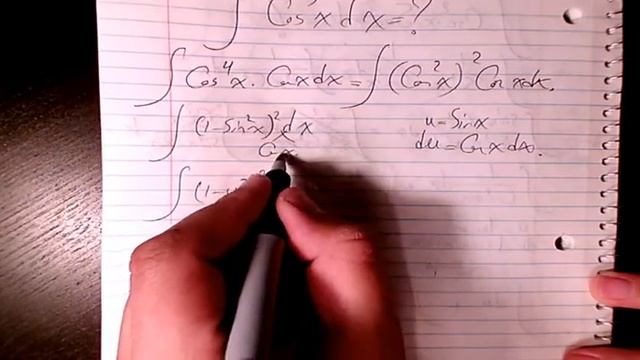 ∫ Cos⁵x dx = ?
∫ Cos⁴x . Cosx dx = ∫ (Cos²x)² Cosxdx.
∫ (1-Sin²x)² dx
Cosx
u = Sinx
du = Cosxdx.
∫ (1-u²)²